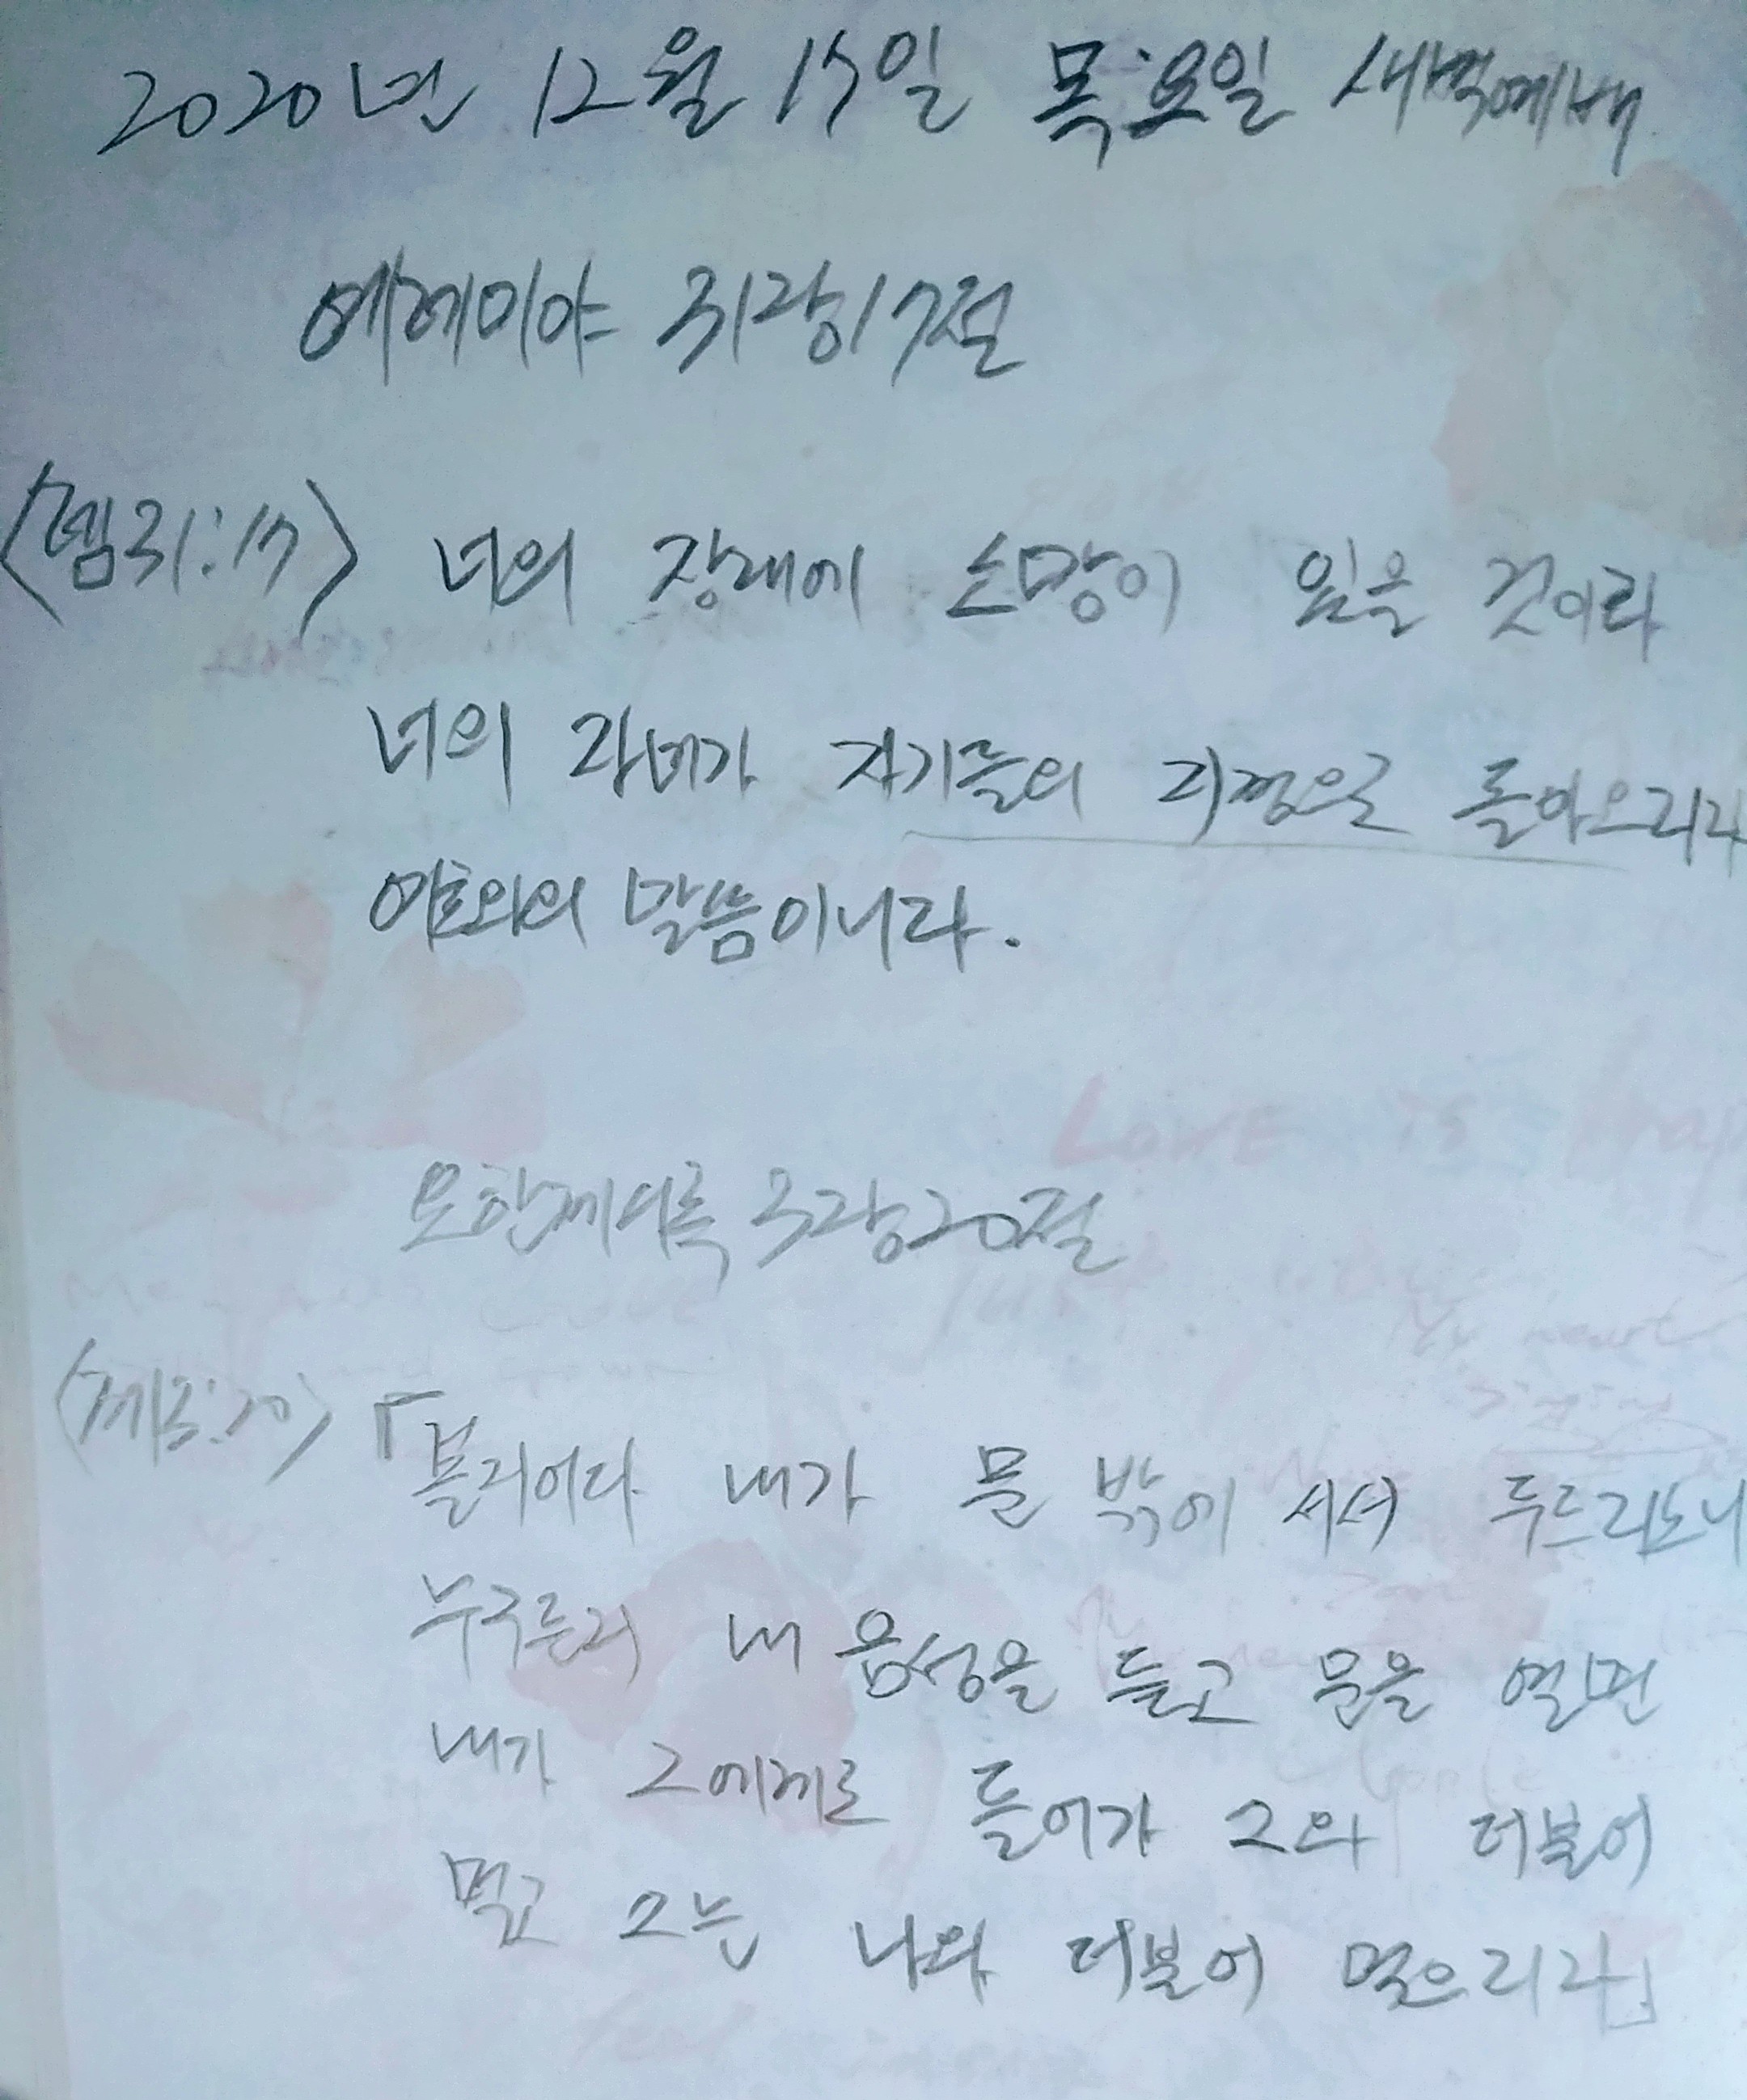 2020년 12월 17일 목요일 새벽예배
예레미야 31장17절
<렘31:17> 너의 장래에 소망이 있을 것이라
너의 자녀가 자기들의 지경으로 돌아오리라
여호와의 말씀이니라.
요한계시록 3장20절
<계3:20>「볼지어다 내가 문 밖에 서서 두드리노니
누구든지 내 음성을 듣고 문을 열면
내가 그에게로 들어가 그와 더불어
먹고 그는 나와 더불어 먹으리라」